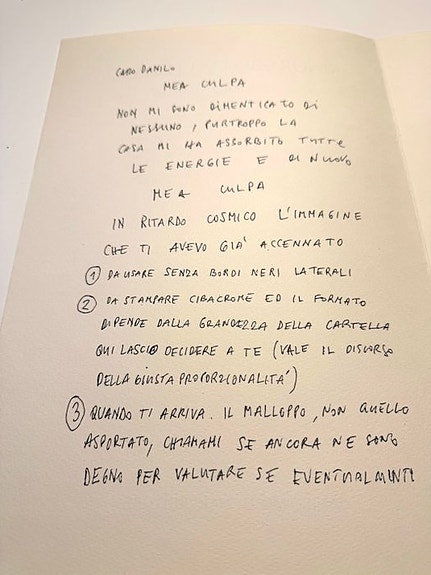 CARO DANILO
MEA CULPA
NON MI SONO DIMENTICATO DI
NESSUNO, PURTROPPO LA
COSA MI HA ASSORBITO TUTTE
LE ENERGIE E DI NUOVO
MEA CULPA
IN RITARDO COSMICO L'IMMAGINE
CHE TI AVEVO GIA' ACCENNATO
1 DA USARE SENZA BORDI NERI LATERALI
2 DA STAMPARE CIBACROME ED IL FORMATO
DIPENDE DALLA GRANDEZZA DELLA CARTELLA
QUI LASCIO DECIDERE A TE (VALE IL DISCORSO
DELLA GIUSTA PROPORZIONALITA')
3 QUANDO TI ARRIVA. IL MALLOPPO, NON QUELLO
ASPORTATO, CHIAMAMI SE ANCORA NE SONO
DEGNO PER VALUTARE SE EVENTUALMENTE